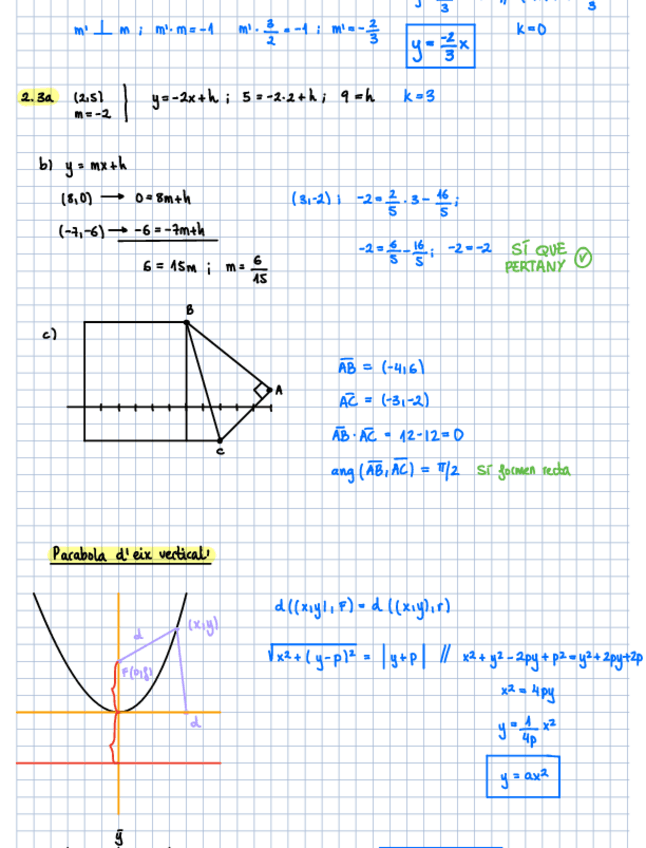 m' ⊥ m ; m'·m = -1   m'·3/2 = -1 ; m' = -2/3   y = -2/3 x   k=0
2.3a   (2,5)   y = -2x+h ; 5 = -2·2+h ; 9 = h   k=3
m = -2
b) y = mx+h
(8,0) → 0 = 8m+h   (3,-2) ; -2 = 2/5 · 3 - 16/5 ;
(-7,-6) → -6 = -7m+h
-2 = 6/5 - 16/5 ; -2 = -2   SÍ QUE PERTANY
6 = 15m ; m = 6/15
c)
B
A
C
AB = (-4,6)
AC = (-3,-2)
AB · AC = 12-12 = 0
ang (AB, AC) = π/2   Sí formen recta
Parabola d'eix vertical:
d
(x,y)
F(0,p)
d
d((x,y), F) = d((x,y), r)
√x²+(y-p)² = |y+p| // x²+y²-2py+p² = y²+2py+2p
x² = 4py
y = 1/4p x²
y = ax²
y